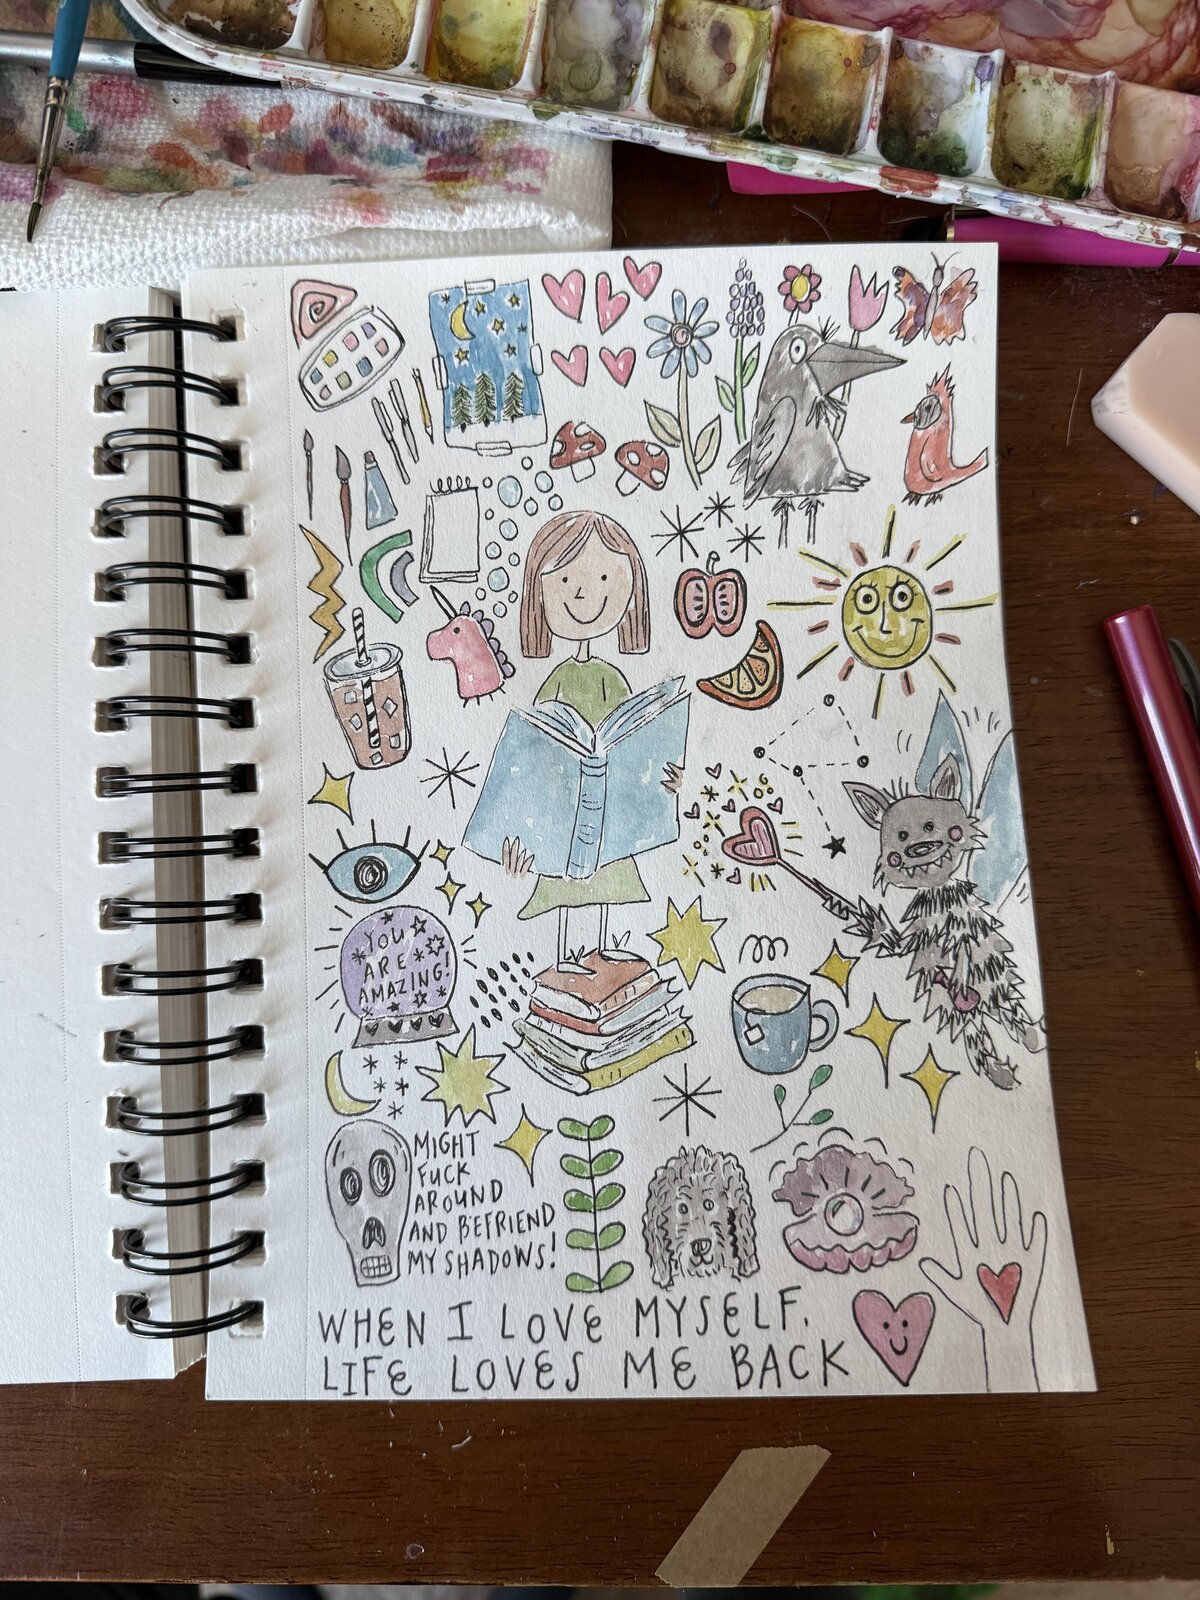 YOU
ARE
AMAZING!
MIGHT
FUCK
AROUND
AND BEFRIEND
MY SHADOWS!
WHEN I LOVE MYSELF,
LIFE LOVES ME BACK